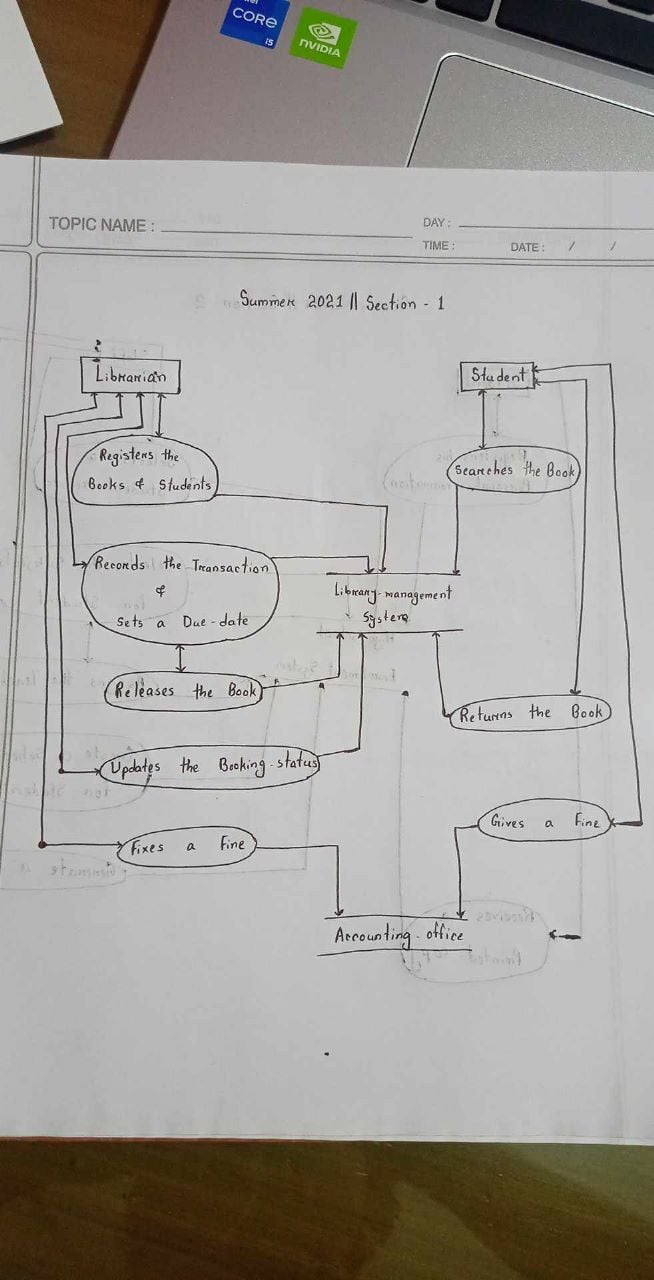 CORE
i5
NVIDIA
TOPIC NAME :
DAY :
TIME :
DATE : / /
Summer 2021 || Section - 1
Librarian
Student
Registers the
Books & Students
Searches the Book
Records the Transaction
&
Sets a Due-date
Library-management
System
Releases the Book
Returns the Book
Updates the Booking-status
Gives a Fine
Fixes a Fine
Accounting-office